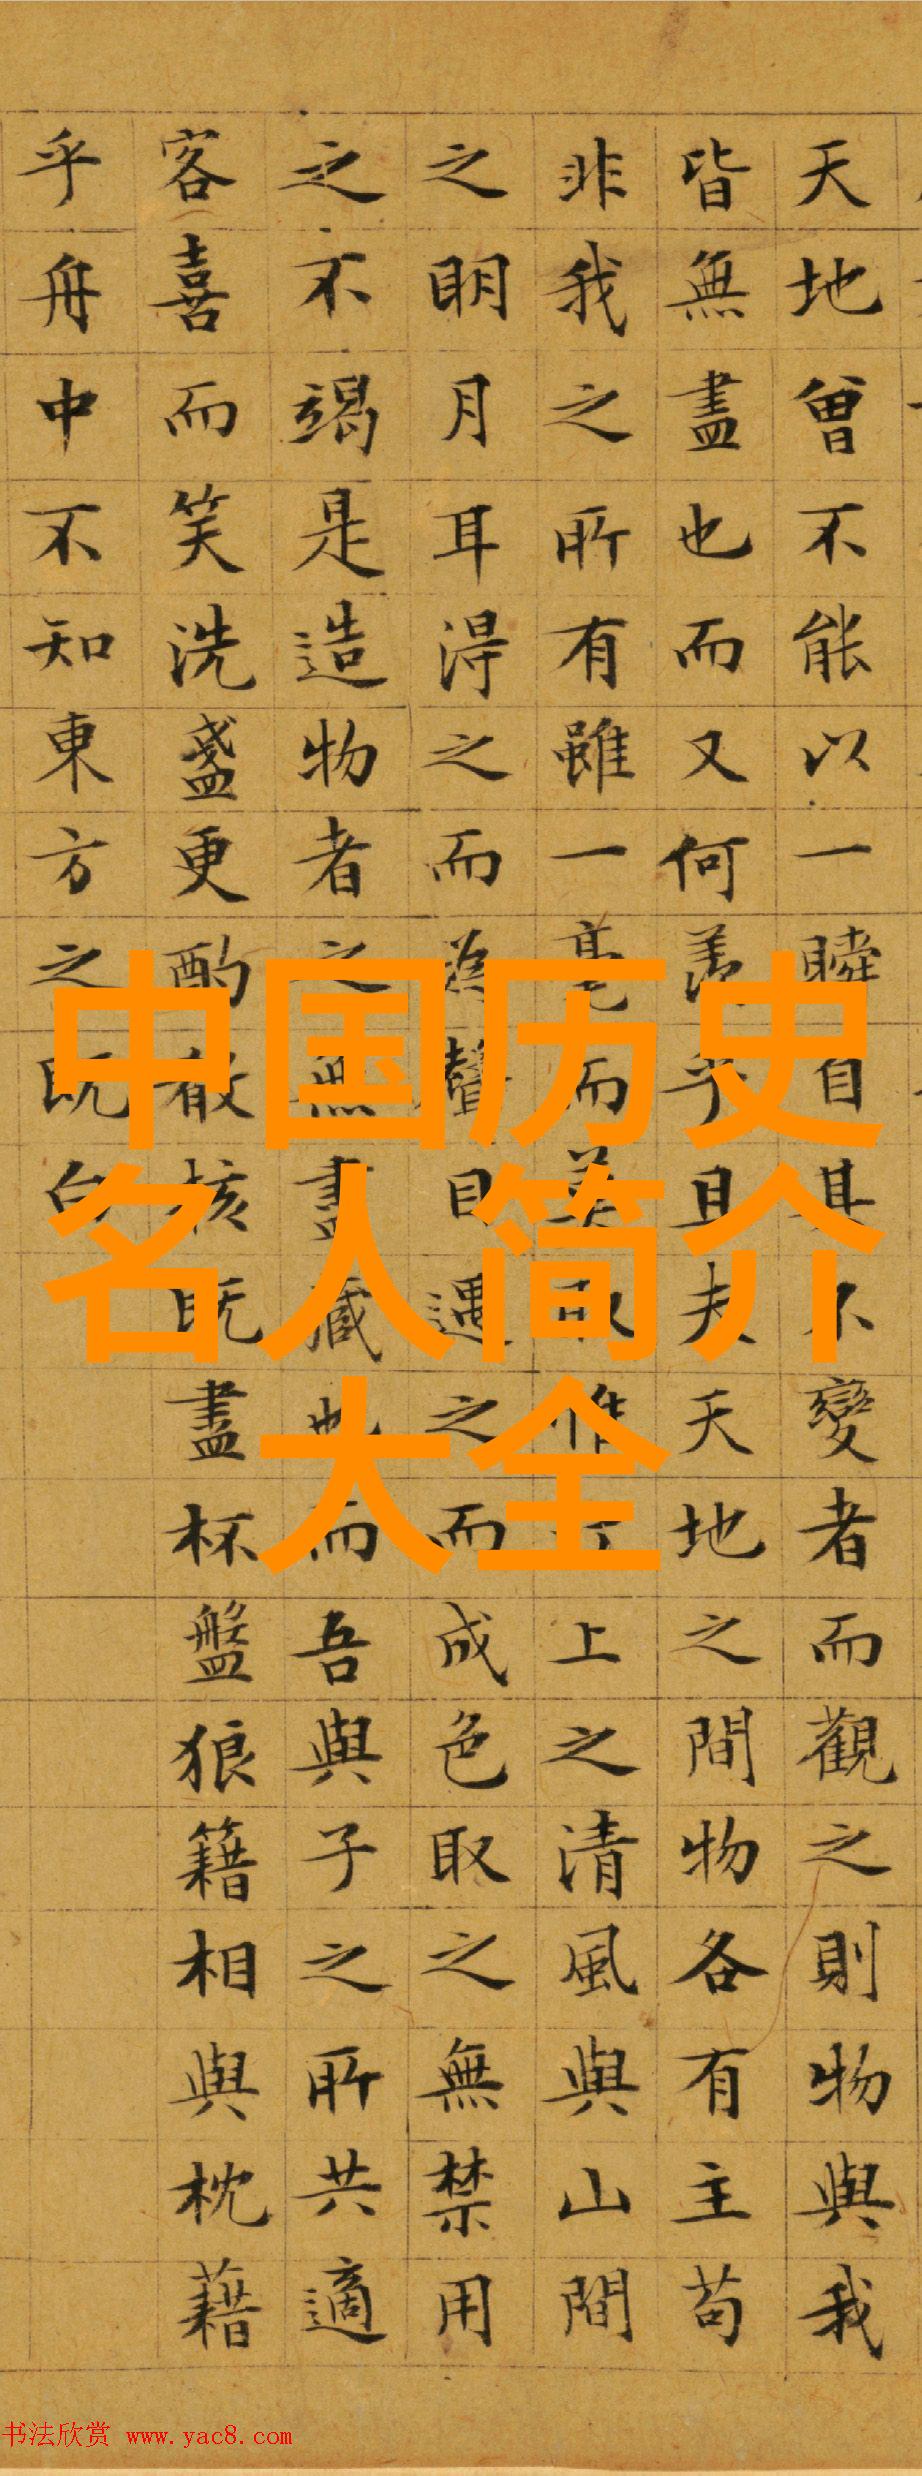 天地曾不能以一瞬自其不變者而觀之則物與我
皆無盡也而又何羨乎且夫天地之間物各有主苟
非我之所有雖一毫而莫取惟上之清風與山間
之眀月耳得之而為聲目遇之而成色取之無禁用
之不竭是造物者之無盡藏也而吾與子之所共適
客喜而笑洗盞更酌殽核既盡杯盤狼籍相與枕藉
乎舟中不知東方之既白
中国历史
名人简介
大全
书法欣赏 www.yac8.com